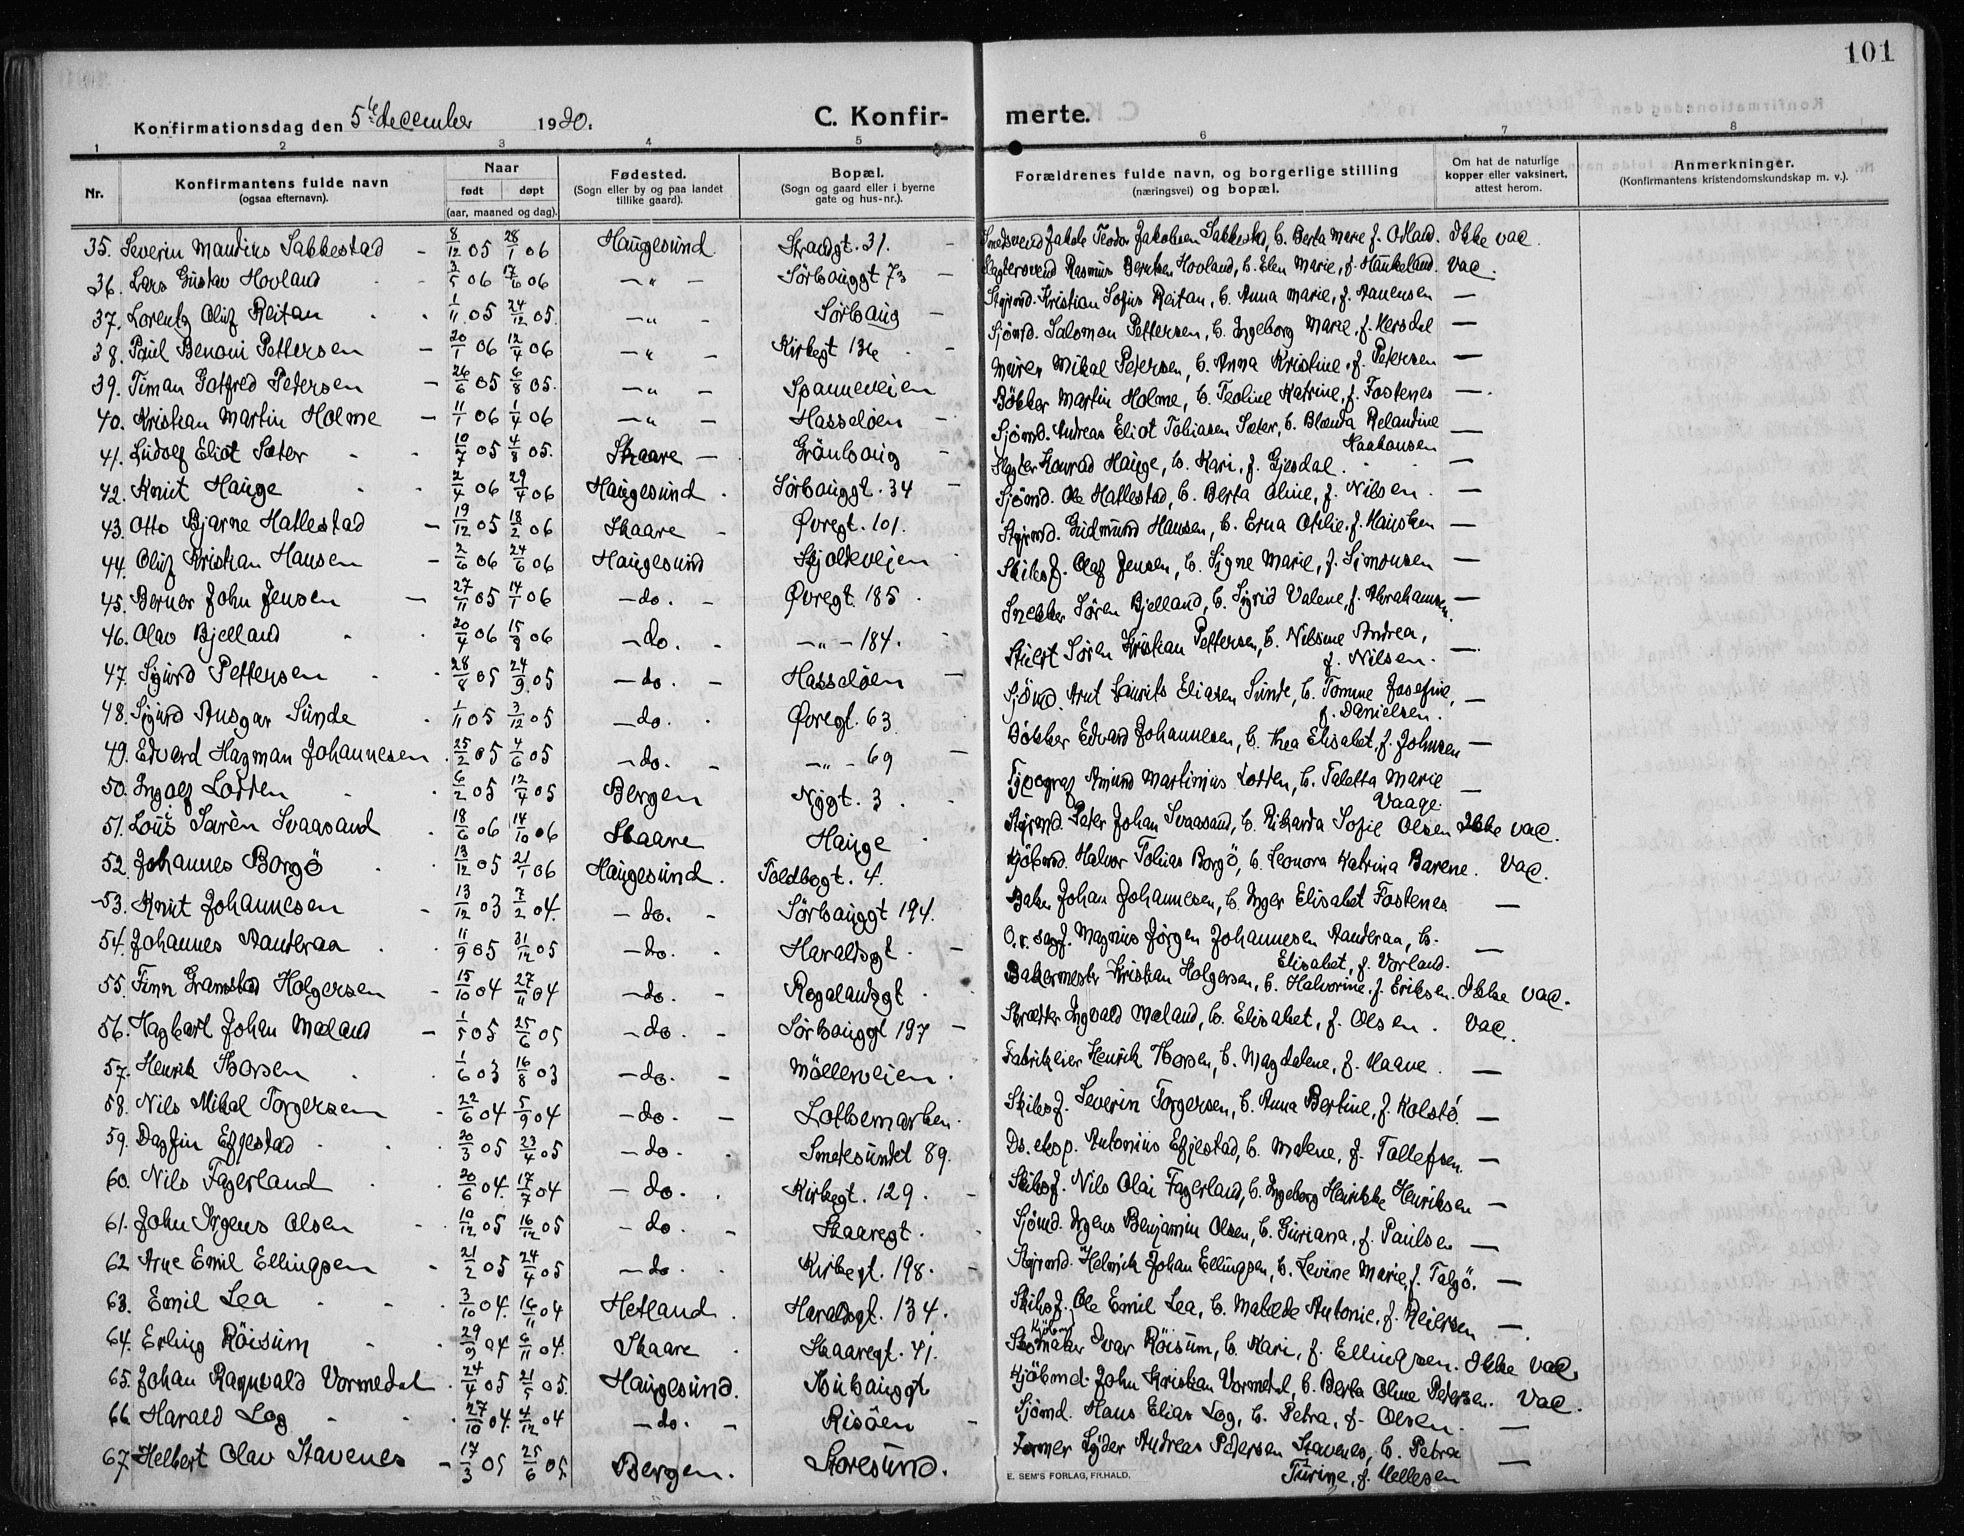 101
Konfirmationsdag den 5te december 1920.
C. Konfirmerte.
1 2 3 4 5 6 7 8
Nr. Konfirmantens fulde navn (ogsaa efternavn). Naar født døpt (aar, maaned og dag). Fødested. (Sogn eller by og paa landet tillike gaard). Bopæl. (Sogn og gaard eller i byerne gate og hus-nr.). Forældrenes fulde navn, og borgerlige stilling (næringsvei) og bopæl. Om hat de naturlige kopper eller vaksinert, attest herom. Anmerkninger. (Konfirmantens kristendomskundskap m. v.).
35. Severin Mauditus Sakkestad - 8/12 05 28/1 06 Haugesund Strandgt. 31. - Smedsvend Jakob Teodor Jakobsen Sakkestad, & Berta Marie f. Odland. Ikke vac.
36. Lars Gustav Hovland 2/5 06 17/6 06 - " - Sörhauggt 73 - Slagtersvend Rasmus Berntsen Hovland, & Elen Marie, f. Haukeland. Vac.
37. Lorentz Oluf Reitan 1/11 05 24/12 05. - " - Sörhaug - Styrmd. Kristian Sofus Reitan, & Anna Marie, f. Aanensen —
38. Paul Benoni Pettersen - 20/1 06 12/4 06 - " - Kirkegt 136 - Sjömd. Salomon Pettersen, & Ingeborg Marie, f. Hersdal —
39. Timan Gotfred Petersen - 26/6 05 6/8 05. - " - Spanneveien Murer Mikal Petersen, & Anna Kristine, f. Petersen —
40. Kristian Martin Holme - 11/1 06 1/4 06 - " - Hasseløen - Bökker Martin Holme, & Teoline Katrine, f. Fostenes —.
41. Ludolf Eliot Sæter 10/7 05 4/8 05. Skaare - Grönhaug - Sjömd. Andreas Eliot Tobiasen Sæter, & Blonda Relandine Haakonsen —
42. Knut Hauge 2/4 06 29/4 06 Haugesund. Sörhauggt. 34 - Slagter Konrad Hauge, & Kari, f. Gjesdal. —
43. Otto Bjarne Hatlestad - 19/12 05 18/2 06 Skaare - Øvregt. 101. Sjömd. Ole Hatlestad, & Berta Oline, f. Nilsen. —
44. Oluf Kristian Hansen - 2/6 06 24/6 06 Haugesund Skjoldveien Styrmd. Gudmund Hansen, & Erna Otilie, f. Hausken —
45. Berner John Jensen - 27/11 05 14/1 06 - do. - Øvregt. 185. Skibsf. Olaf Jensen, & Signe Marie, f. Simonsen —
46. Olav Bjelland 20/4 06 15/8 06 - do. - - " - 184. Snekker Sören Bjelland, & Sigrid Valene, f. Abrahamsen. —
47. Sigurd Pettersen 28/8 05 24/9 05 - do. - Hasseløen - Sören Kristian Pettersen, & Nilsine Andrea, f. Nilsen. —.
48. Sigurd Ansgar Sunde 1/11 05 3/12 05 - do. Øvregt. 63 Sjömd. Knut Laurits Eliasen Sunde, & Tomine Josefine, f. Danielsen. —
49. Edvard Hagman Johannesen 25/2 05 4/6 05 - do. - - " - 69 - Bökker Edvard Johannesen, & Thea Elisabet, f. Johnsen —
50. Ingolf Lodden 6/2 05 12/4 05 Bergen Nygt. 3. Typograf Amund Martinius Lodden, & Taletta Marie Vaage. —
51. Louis Sørèn Svaasand 18/6 06 14/10 06 Skaare Hauge Styrmd. Peter Johan Svaasand, & Rikarda Sofie Olsen Ikke vac.
52. Johannes Borgö 13/12 05 21/1 06 Haugesund. Toldbogt. 4. Kjöbmd. Halvor Tobias Borgö, & Leonora Katrina Barene. Vac.
53. Knut Johannesen 13/12 03 7/2 04. - do. - Sørhauggt 194. Baker Johan Johannesen, & Inger Elisabet Fostenes —
54. Johannes Aanderaa 11/9 05 31/12 05 - do. Haraldsgt. - O.r. sagf. Magnus Jørgen Johannesen Aanderaa, & Elisabet, f. Vorland. —
55. Finn Gramstad Holgersen - 15/10 04 27/11 04 - do. - Rogalandsgt. Bakermester Kristian Holgersen, & Halvorine, f. Eriksen. Ikke vac.
56. Hagbart Johan Mæland - 1/5 05 25/6 05 - do. - Sørhauggt 197 - Skrædder Ingvald Mæland, & Elisabet, f. Olsen. Vac.
57. Henrik Thorsen 1/6 03 16/8 03 - do. - Möllerveien. Fabrikeier Henrik Thorsen, & Magdalene, f. Haave. —
58. Nils Mikal Torgersen - 22/6 04 5/9 04 - do. - Lothemarken. Skibsf. Severin Torgersen, & Anna Bertine, f. Kolstö. —
59. Dagfin Egjestad 20/3 05 23/4 05 - do. Smedesundet 89. Ds. eksp. Antonius Egjestad, & Malene, f. Tollefsen. —
60. Nils Fagerland 20/6 04. 17/7 04 - do. Kirkegt. 129. - Skibsf. Nils Olai Fagerland, & Ingeborg Henrikke Henriksen —
61. John Irgens Olsen 10/12 05 16/12 05 - do. - Skaaregt. Sjömd. Irgens Benjamin Olsen, & Guriana, f. Paulsen —
62 Arne Emil Ellingsen - 21/2 05 24/4 05 - do. Kirkegt. 198. - Styrmd. Helmik Johan Ellingsen, & Levine Marie, f. Talgö. —
63. Emil Lea 3/10 04. 16/11 04 Hetland. Haraldsgt. 134. Skibsf. Ole Emil Lea, & Matilde Antonie, f. Reiersen —.
64. Erling Röisum 29/9 04 6/11 04. Skaare Skaaregt. 41. Kjöbmd Skomaker Ivar Röisum, & Kari, f. Ellingsen. Ikke vac.
65. Johan Ragnvald Vormedal 24/4 05 21/5 05. Haugesund. Nordhauggt Kjöbmd. John Kristian Vormedal, & Berta Oline Petersen. Vac.
66 Harald Log 27/10 04. 4/12 04 - do. - Risöen - Sjömd. Hans Elias Log, & Petra, f. Olsen. —
67. Helbert Olav Stavenes - 17/3 05 25/6 05 Bergen. Storesund. Former Lyder Andreas Pedersen Stavenes, & Petra Turine, f. Mellesen —
E. SEM'S FORLAG, FR.HALD.